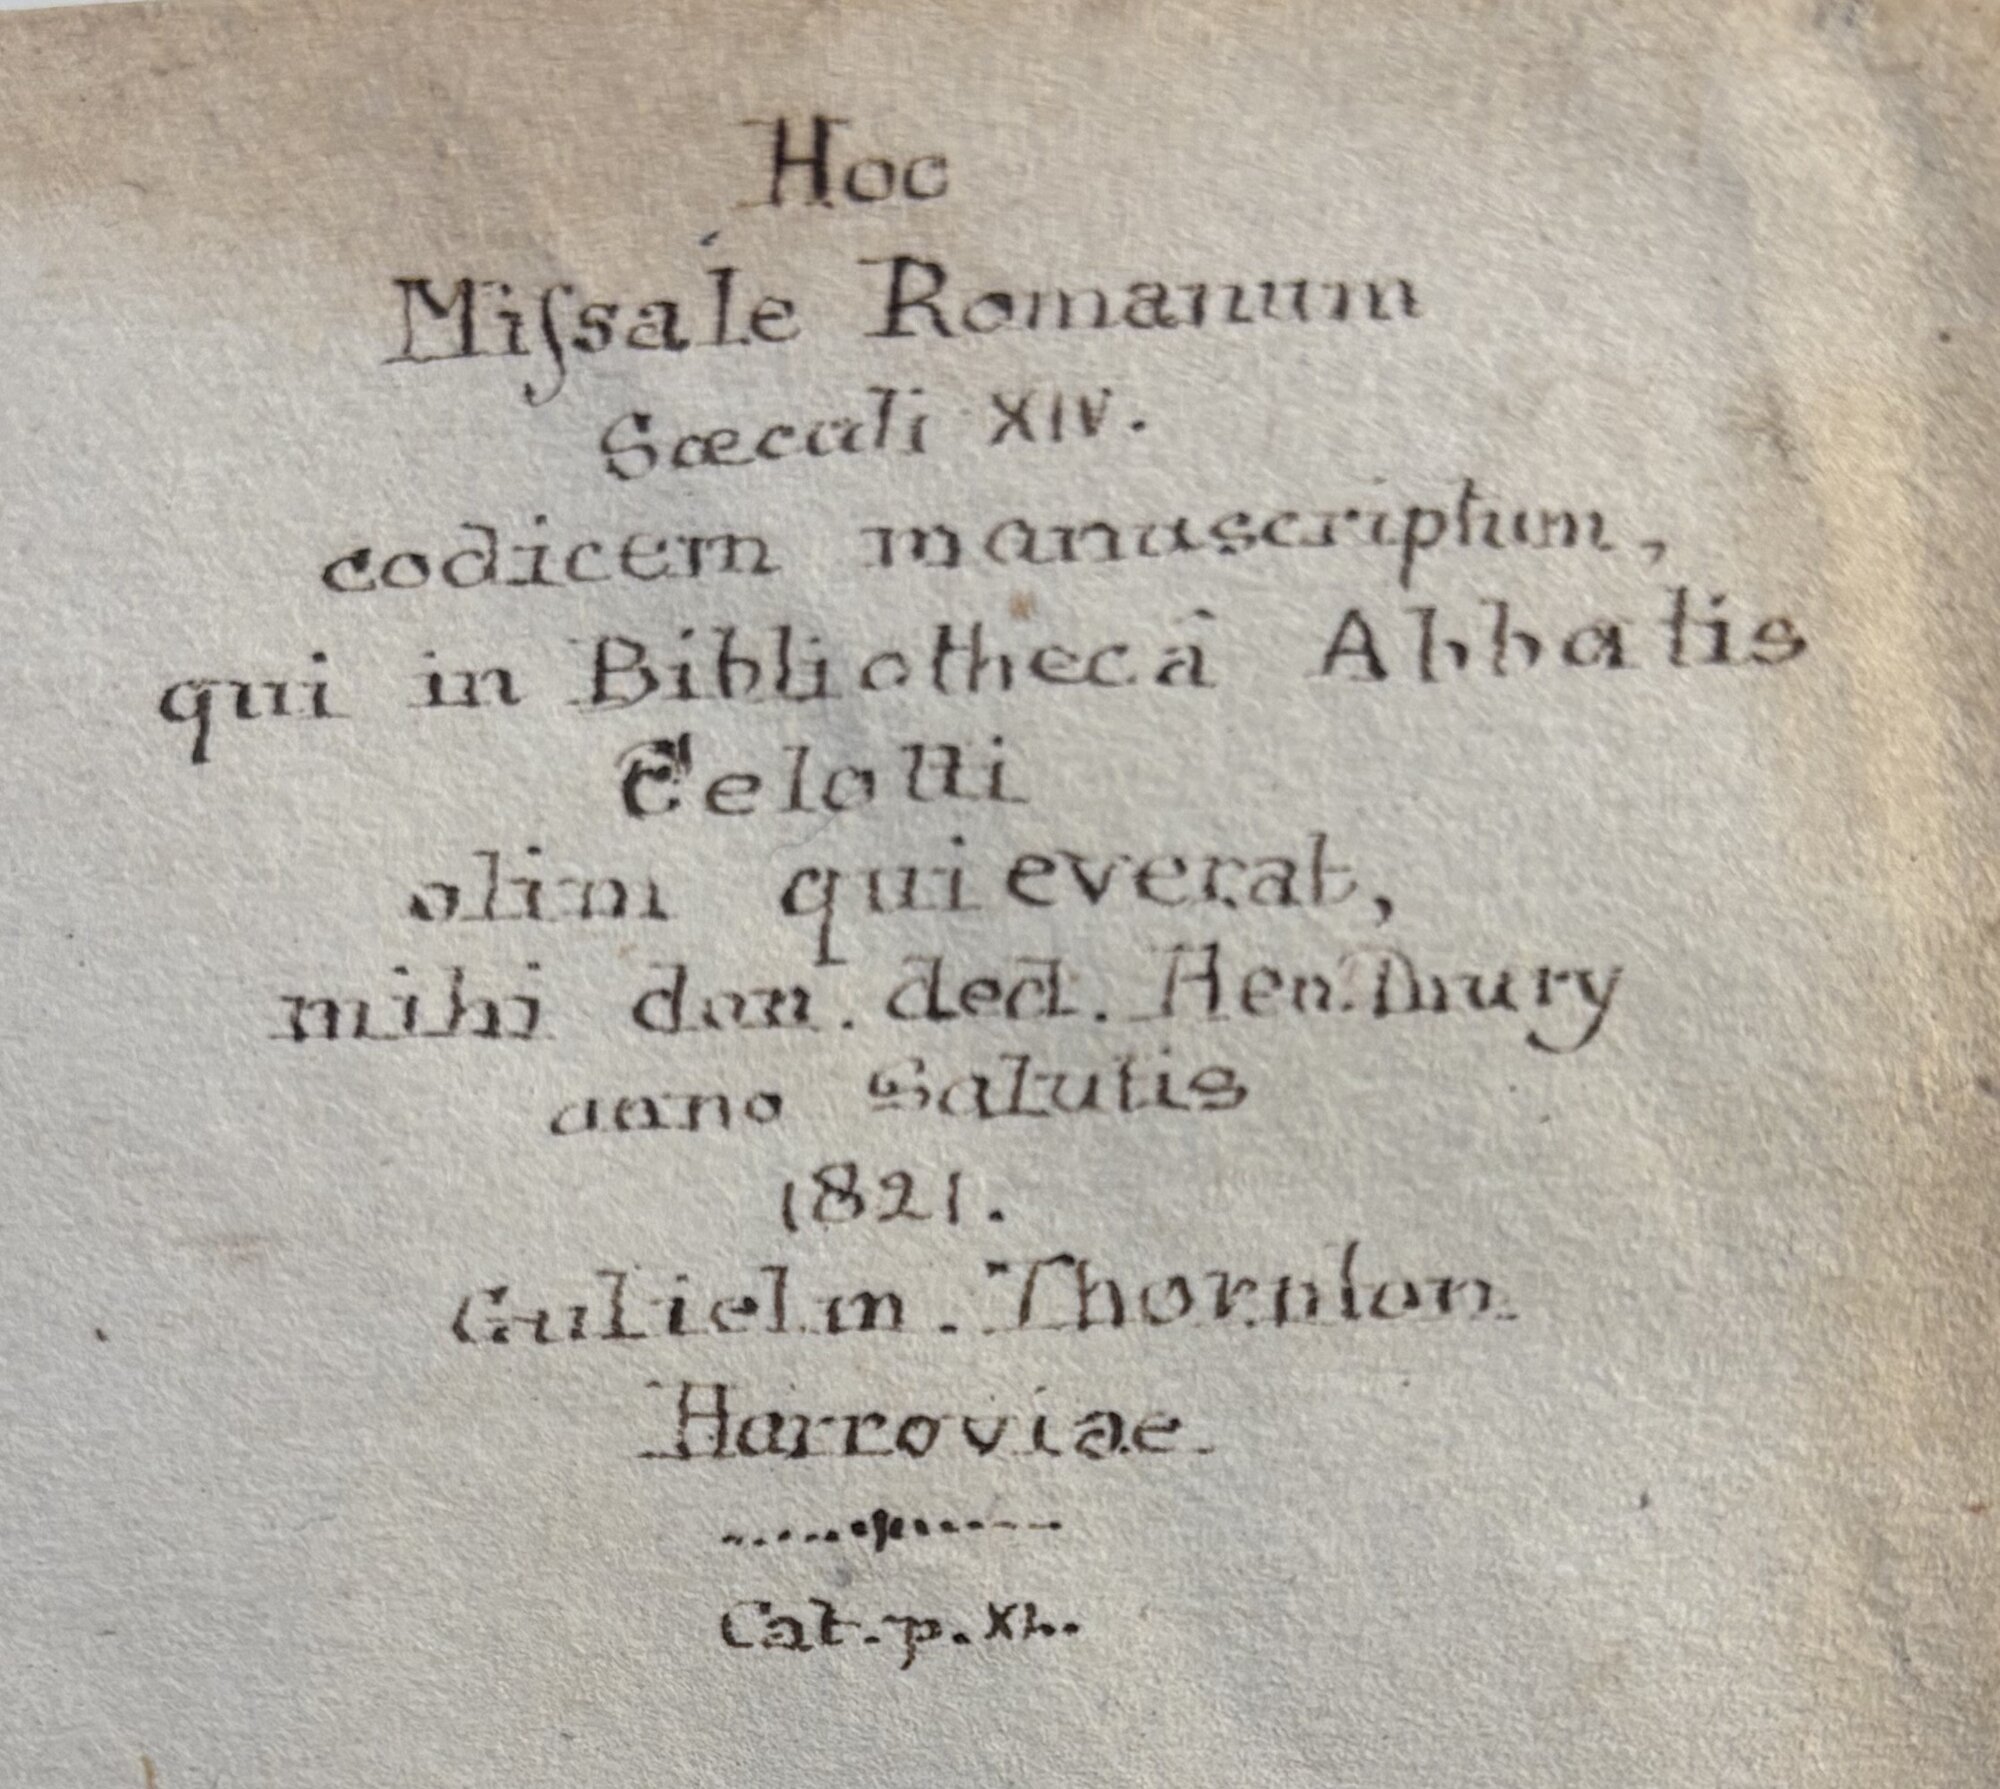 Hoc
Miſsale Romanum
Sœculi XIV.
codicem manuscriptum,
qui in Bibliothecâ Abbatis
Celotti
olim quieverat,
mihi don. ded. Hen. Drury
anno Salutis
1821.
Gulielm. Thornton
Harroviae.
Cat. p. XL.